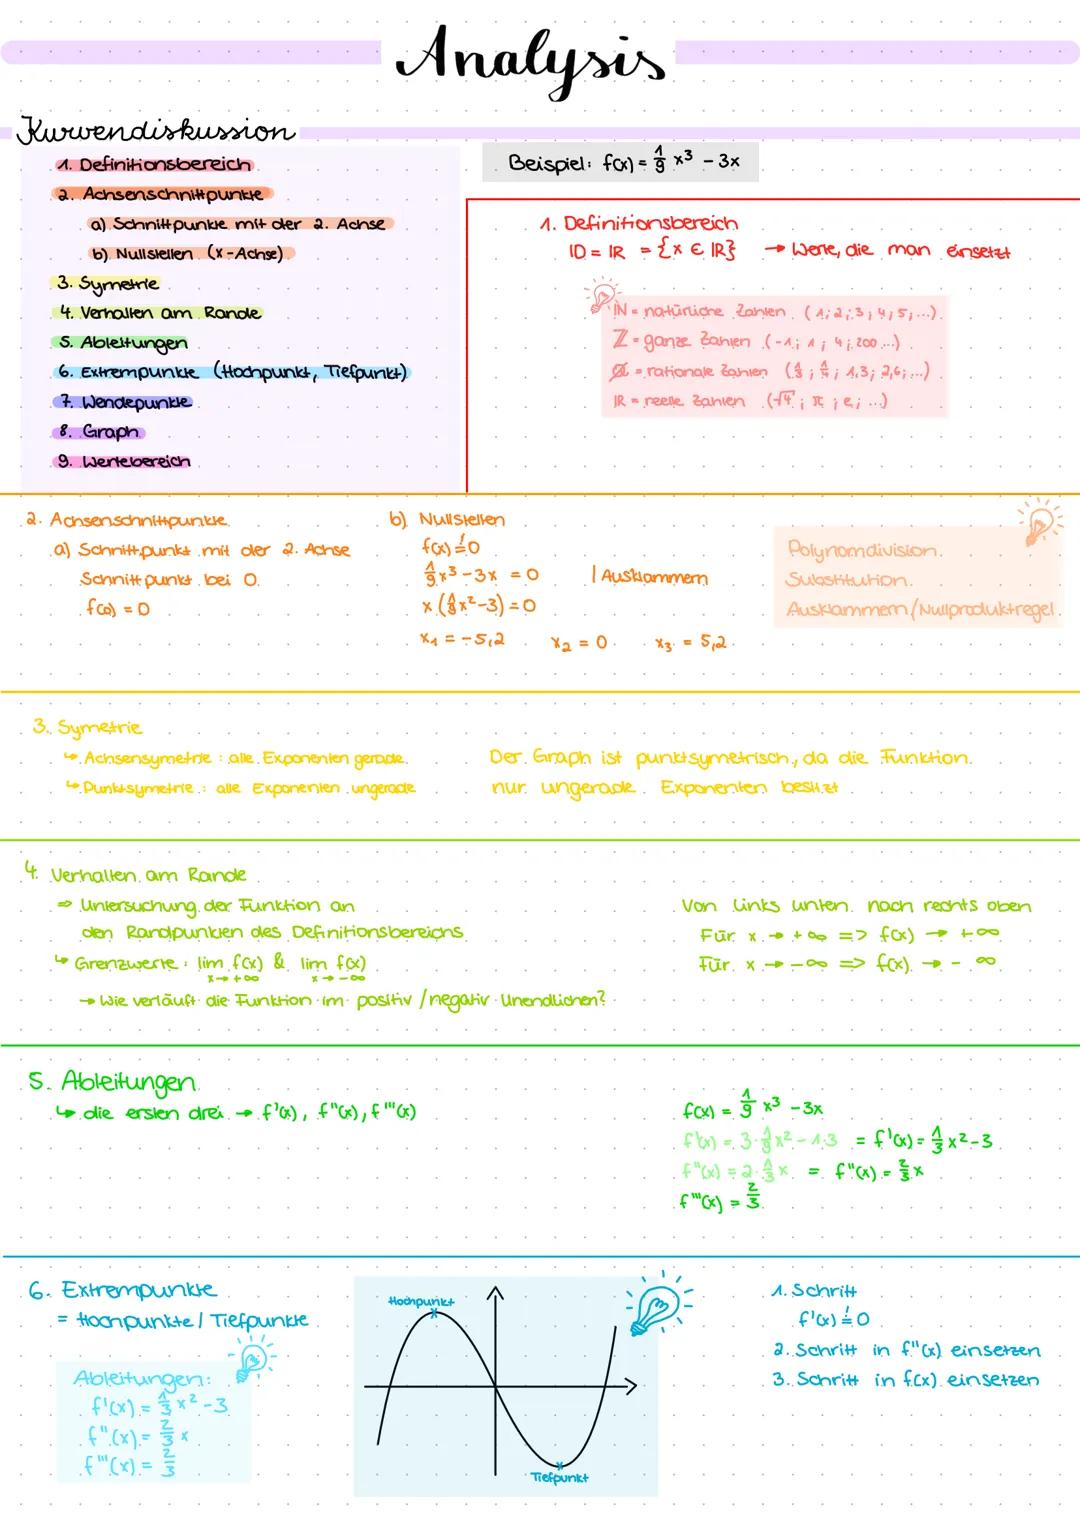 Analysis
Kurvendiskussion
1. Definitionsbereich
2. Achsenschnittpunkte
a) Schnittpunkte mit der 2. Achse
b) Nullstellen (x-Achse)
3. Symetrie
4. Verhalten am Rande
5. Ableitungen
6. Extrempunkte (Hochpunkt, Tiefpunkt)
7. Wendepunkte
8. Graph
9. Wertebereich
Beispiel: f(x) = 1/9 x³ - 3x
1. Definitionsbereich
ID = IR = {x ∈ IR} → Werte, die man einsetzt
IN = natürliche Zahlen (1; 2; 3; 4; 5; ...)
ℤ = ganze Zahlen (-1; 1; 4; 200 ...)
ℚ = rationale Zahlen (1/3; 1/4; 1,3; 2,6; ...)
IR = reelle Zahlen (√4; π; e; ...)
2. Achsenschnittpunkte
a) Schnittpunkt mit der 2. Achse
Schnittpunkt bei 0
f(0) = 0
b) Nullstellen
f(x) =! 0
1/9 x³ - 3x = 0 | Ausklammern
x (1/9 x² - 3) = 0
x₁ = -5,2 x₂ = 0 x₃ = 5,2
Polynomdivision
Substitution
Ausklammern/Nullproduktregel
3. Symetrie
↳ Achsensymetrie : alle Exponenten gerade
↳ Punktsymetrie : alle Exponenten ungerade
Der Graph ist punktsymetrisch, da die Funktion
nur ungerade Exponenten besitzt
4. Verhalten am Rande
⇒ Untersuchung der Funktion an
den Randpunkten des Definitionsbereichs
↳ Grenzwerte : lim f(x) & lim f(x)
x→+∞ x→-∞
→ Wie verläuft die Funktion im positiv / negativ Unendlichen?
Von links unten nach rechts oben
Für x → +∞ => f(x) → +∞
Für x → -∞ => f(x) → -∞
5. Ableitungen
↳ die ersten drei → f'(x), f''(x), f'''(x)
f(x) = 1/9 x³ - 3x
f'(x) = 3·1/9 x² - 1·3 = f'(x) = 1/3 x² - 3
f''(x) = 2·1/3 x = f''(x) = 2/3 x
f'''(x) = 2/3
6. Extrempunkte
= Hochpunkte / Tiefpunkte
Ableitungen:
f'(x) = 1/3 x² - 3
f''(x) = 2/3 x
f'''(x) = 2/3
Hochpunkt
Tiefpunkt
1. Schritt
f'(x) =! 0
2. Schritt in f''(x) einsetzen
3. Schritt in f(x) einsetzen